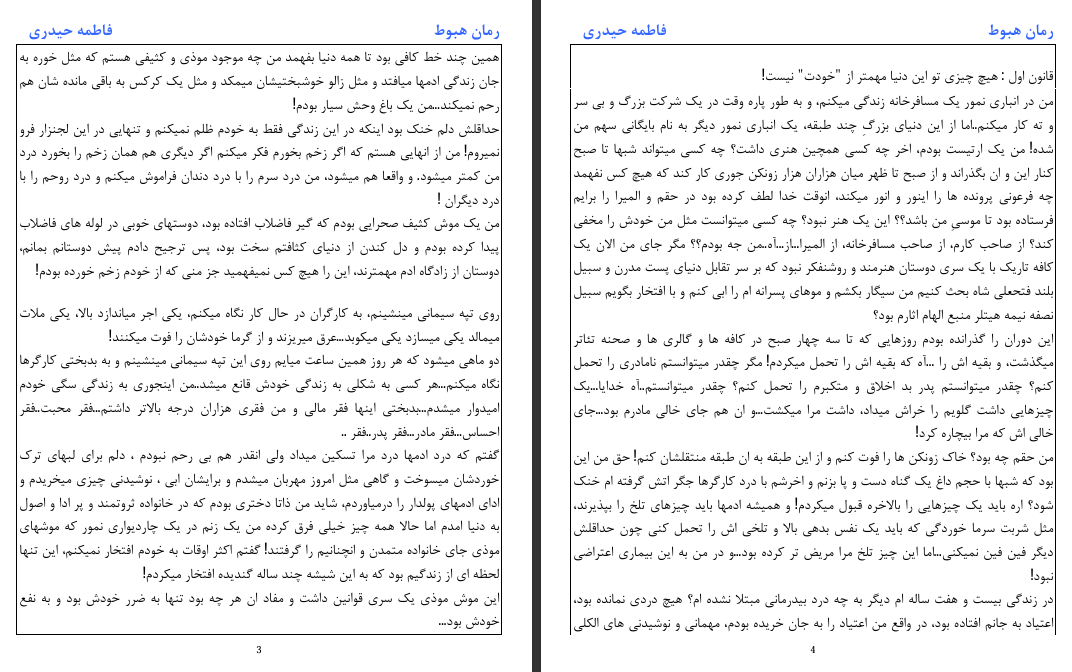 رمان هبوط
فاطمه حیدری
همین چند خط کافی بود تا همه دنیا بفهمد من چه موجود موذی و کثیفی هستم که مثل خوره به
جان زندگی ادمها میافتد و مثل زالو خوشبختیشان میمکد و مثل یک کرکس به باقی مانده شان هم
رحم نمیکند...من یک باغ وحش سیار بودم!
حداقلش دلم خنک بود اینکه در این زندگی فقط به خودم ظلم نمیکنم و تنهایی در این لجنزار فرو
نمیروم! من از انهایی هستم که اگر زخم بخورم فکر میکنم اگر دیگری هم همان زخم را بخورد درد
من کمتر میشود. و واقعا هم میشود، من درد سرم را با درد دندان فراموش میکنم و درد روحم را با
درد دیگران !
من یک موش کثیف صحرایی بودم که گیر فاضلاب افتاده بود، دوستهای خوبی در لوله های فاضلاب
پیدا کرده بودم و دل کندن از دنیای کثافتم سخت بود، پس ترجیح دادم پیش دوستانم بمانم،
دوستان از زادگاه ادم مهمترند، این را هیچ کس نمیفهمید جز منی که از خودم زخم خورده بودم!
روی تپه سیمانی مینشینم، به کارگران در حال کار نگاه میکنم، یکی اجر میاندازد بالا، یکی ملات
میمالد یکی میسازد یکی میکوبد...عرق میریزند و از گرما خودشان را فوت میکنند!
دو ماهی میشود که هر روز همین ساعت میایم روی این تپه سیمانی مینشینم و به بدبختی کارگرها
نگاه میکنم...هر کسی به شکلی به زندگی خودش قانع میشد..من اینجوری به زندگی سگی خودم
امیدوار میشدم...بدبختی اینها فقر مالی و من فقری هزاران درجه بالاتر داشتم...فقر محبت..فقر
احساس...فقر مادر...فقر پدر..فقر ..
گفتم که درد ادمها درد مرا تسکین میداد ولی انقدر هم بی رحم نبودم ، دلم برای لبهای ترک
خوردشان میسوخت و گاهی مثل امروز مهربان میشدم و برایشان ابی ، نوشیدنی چیزی میخریدم و
ادای ادمهای پولدار را درمیاوردم، شاید من ذاتا دختری بودم که در خانواده ثروتمند و پر ادا و اصول
به دنیا امدم اما حالا همه چیز خیلی فرق کرده من یک زنم در یک چاردیواری نمور که موشهای
موذی جای خانواده متمدن و انچنانیم را گرفتند! گفتم اکثر اوقات به خودم افتخار نمیکنم، این تنها
لحظه ای از زندگیم بود که به این شیشه چند ساله گندیده افتخار میکردم!
این موش موذی یک سری قوانین داشت و مفاد ان هر چه بود تنها به ضرر خودش بود و به نفع
خودش بود...
3
رمان هبوط
فاطمه حیدری
قانون اول : هیچ چیزی تو این دنیا مهمتر از "خودت" نیست!
من در انباری نمور یک مسافرخانه زندگی میکنم، و به طور پاره وقت در یک شرکت بزرگ و بی سر
و ته کار میکنم..اما از این دنیای بزرگِ چند طبقه، یک انباری نمور دیگر به نام بایگانی سهم من
شده! من یک ارتیست بودم، اخر چه کسی همچین هنری داشت؟ چه کسی میتواند شبها تا صبح
کنار این و ان بگذراند و از صبح تا ظهر میان هزاران هزار زونکن جوری کار کند که هیچ کس نفهمد
چه فرعونی پرونده ها را اینور و انور میکند، انوقت خدا لطف کرده بود در حقم و المیرا را برایم
فرستاده بود تا موسیِ من باشد؟؟ این یک هنر نبود؟ چه کسی میتوانست مثل من خودش را مخفی
کند؟ از صاحب کارم، از صاحب مسافرخانه، از المیرا..از...آه..من جه بودم؟؟ مگر جای من الان یک
کافه تاریک با یک سری دوستان هنرمند و روشنفکر نبود که بر سر تقابل دنیای پست مدرن و سبیل
بلند فتحعلی شاه بحث کنیم من سیگار بکشم و موهای پسرانه ام را ابی کنم و با افتخار بگویم سبیل
نصفه نیمه هیتلر منبع الهام اثارم بود؟
این دوران را گذرانده بودم روزهایی که تا سه چهار صبح در کافه ها و گالری ها و صحنه تئاتر
میگذشت، و بقیه اش را ...آه که بقیه اش را تحمل میکردم! مگر چقدر میتوانستم نامادری را تحمل
کنم؟ چقدر میتوانستم پدر بد اخلاق و متکبرم را تحمل کنم؟ چقدر میتوانستم..آه خدایا...یک
چیزهایی داشت گلویم را خراش میداد، داشت مرا میکشت...و ان هم جای خالی مادرم بود...جای
خالی اش که مرا بیچاره کرد!
من حقم چه بود؟ خاک زونکن ها را فوت کنم و از این طبقه به ان طبقه منتقلشان کنم! حق من این
بود که شبها با حجم داغ یک گناه دست و پا بزنم و اخرشم با درد کارگرها جگر اتش گرفته ام خنک
شود؟ اره باید یک چیزهایی را بالاخره قبول میکردم! و همیشه ادمها باید چیزهای تلخ را بپذیرند،
مثل شربت سرما خوردگی که باید یک نفس بدهی بالا و تلخی اش را تحمل کنی چون حداقلش
دیگر فین فین نمیکنی..اما این چیز تلخ مرا مریض تر کرده بود...و در من به این بیماری اعتراضی
نبود!
در زندگی بیست و هفت ساله ام دیگر به چه درد بیدرمانی مبتلا نشده ام؟ هیچ دردی نمانده بود،
اعتیاد به جانم افتاده بود، در واقع من اعتیاد را به جان خریده بودم، مهمانی و نوشیدنی های الکلی
4